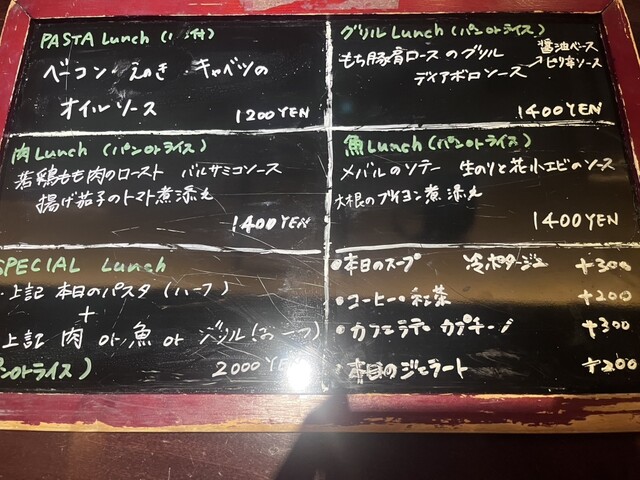 PASTA Lunch (パン付)
ベーコン・えのき・キャベツの
オイルソース
1200YEN
グリルLunch (パンorライス)
もち豚肩ロースのグリル
醤油ベース
ピリ辛ソース
ディアボロソース
1400YEN
肉Lunch (パンorライス)
若鶏もも肉のロースト バルサミコソース
揚げ茄子のトマト煮添え
1400YEN
魚Lunch (パンorライス)
メバルのソテー 生のりと花小エビのソース
大根のブイヨン煮添え
1400YEN
SPECIAL Lunch
・上記 本日のパスタ (ハーフ)
+
上記 肉 or 魚 or グリル (お一つ)
パンorライス)
2000YEN
・本日のスープ 冷ポタージュ +300
・コーヒー・紅茶 +200
・カフェラテ・カプチーノ +300
・本日のジェラート +200